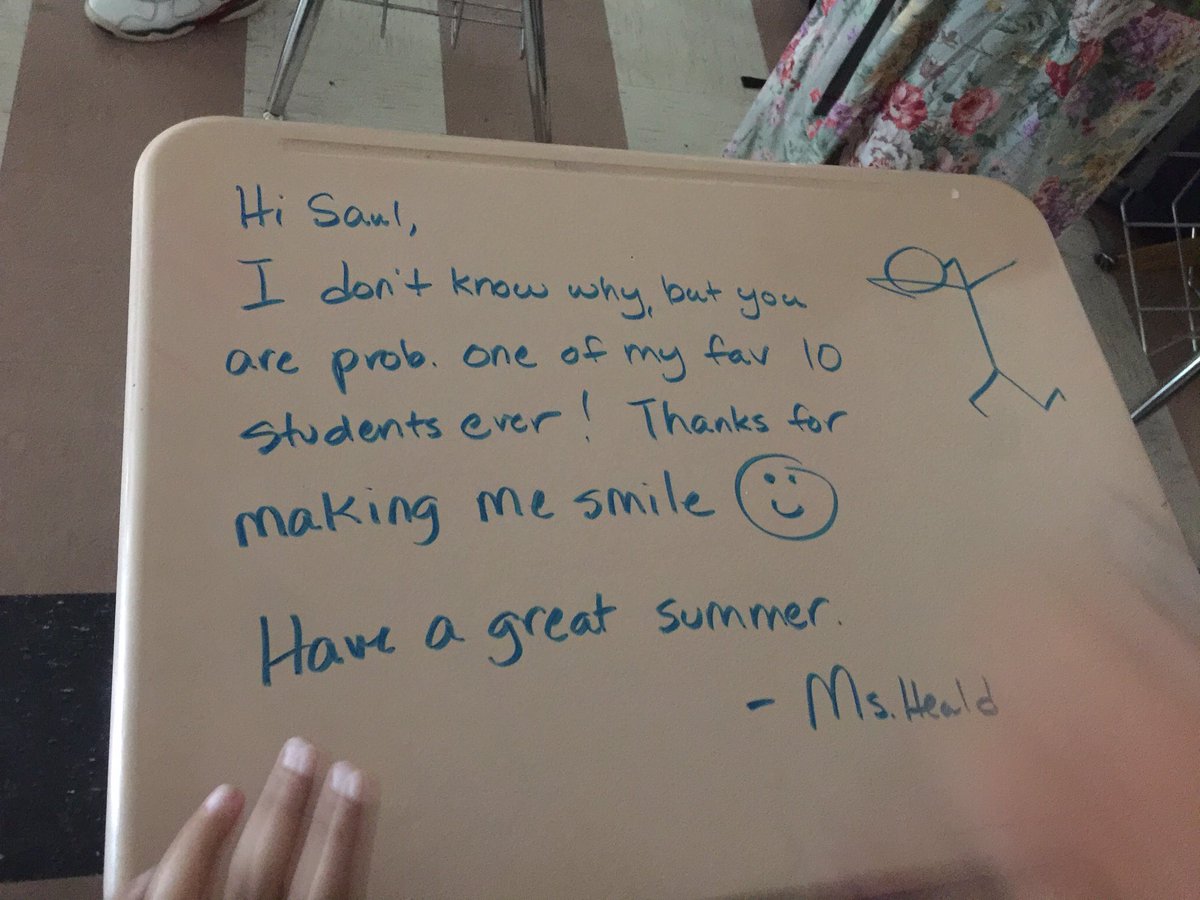 Hi Saul,
I don't know why, but you
are prob. one of my fav 10
students ever! Thanks for
making me smile
Have a great summer.
- Ms. Heald